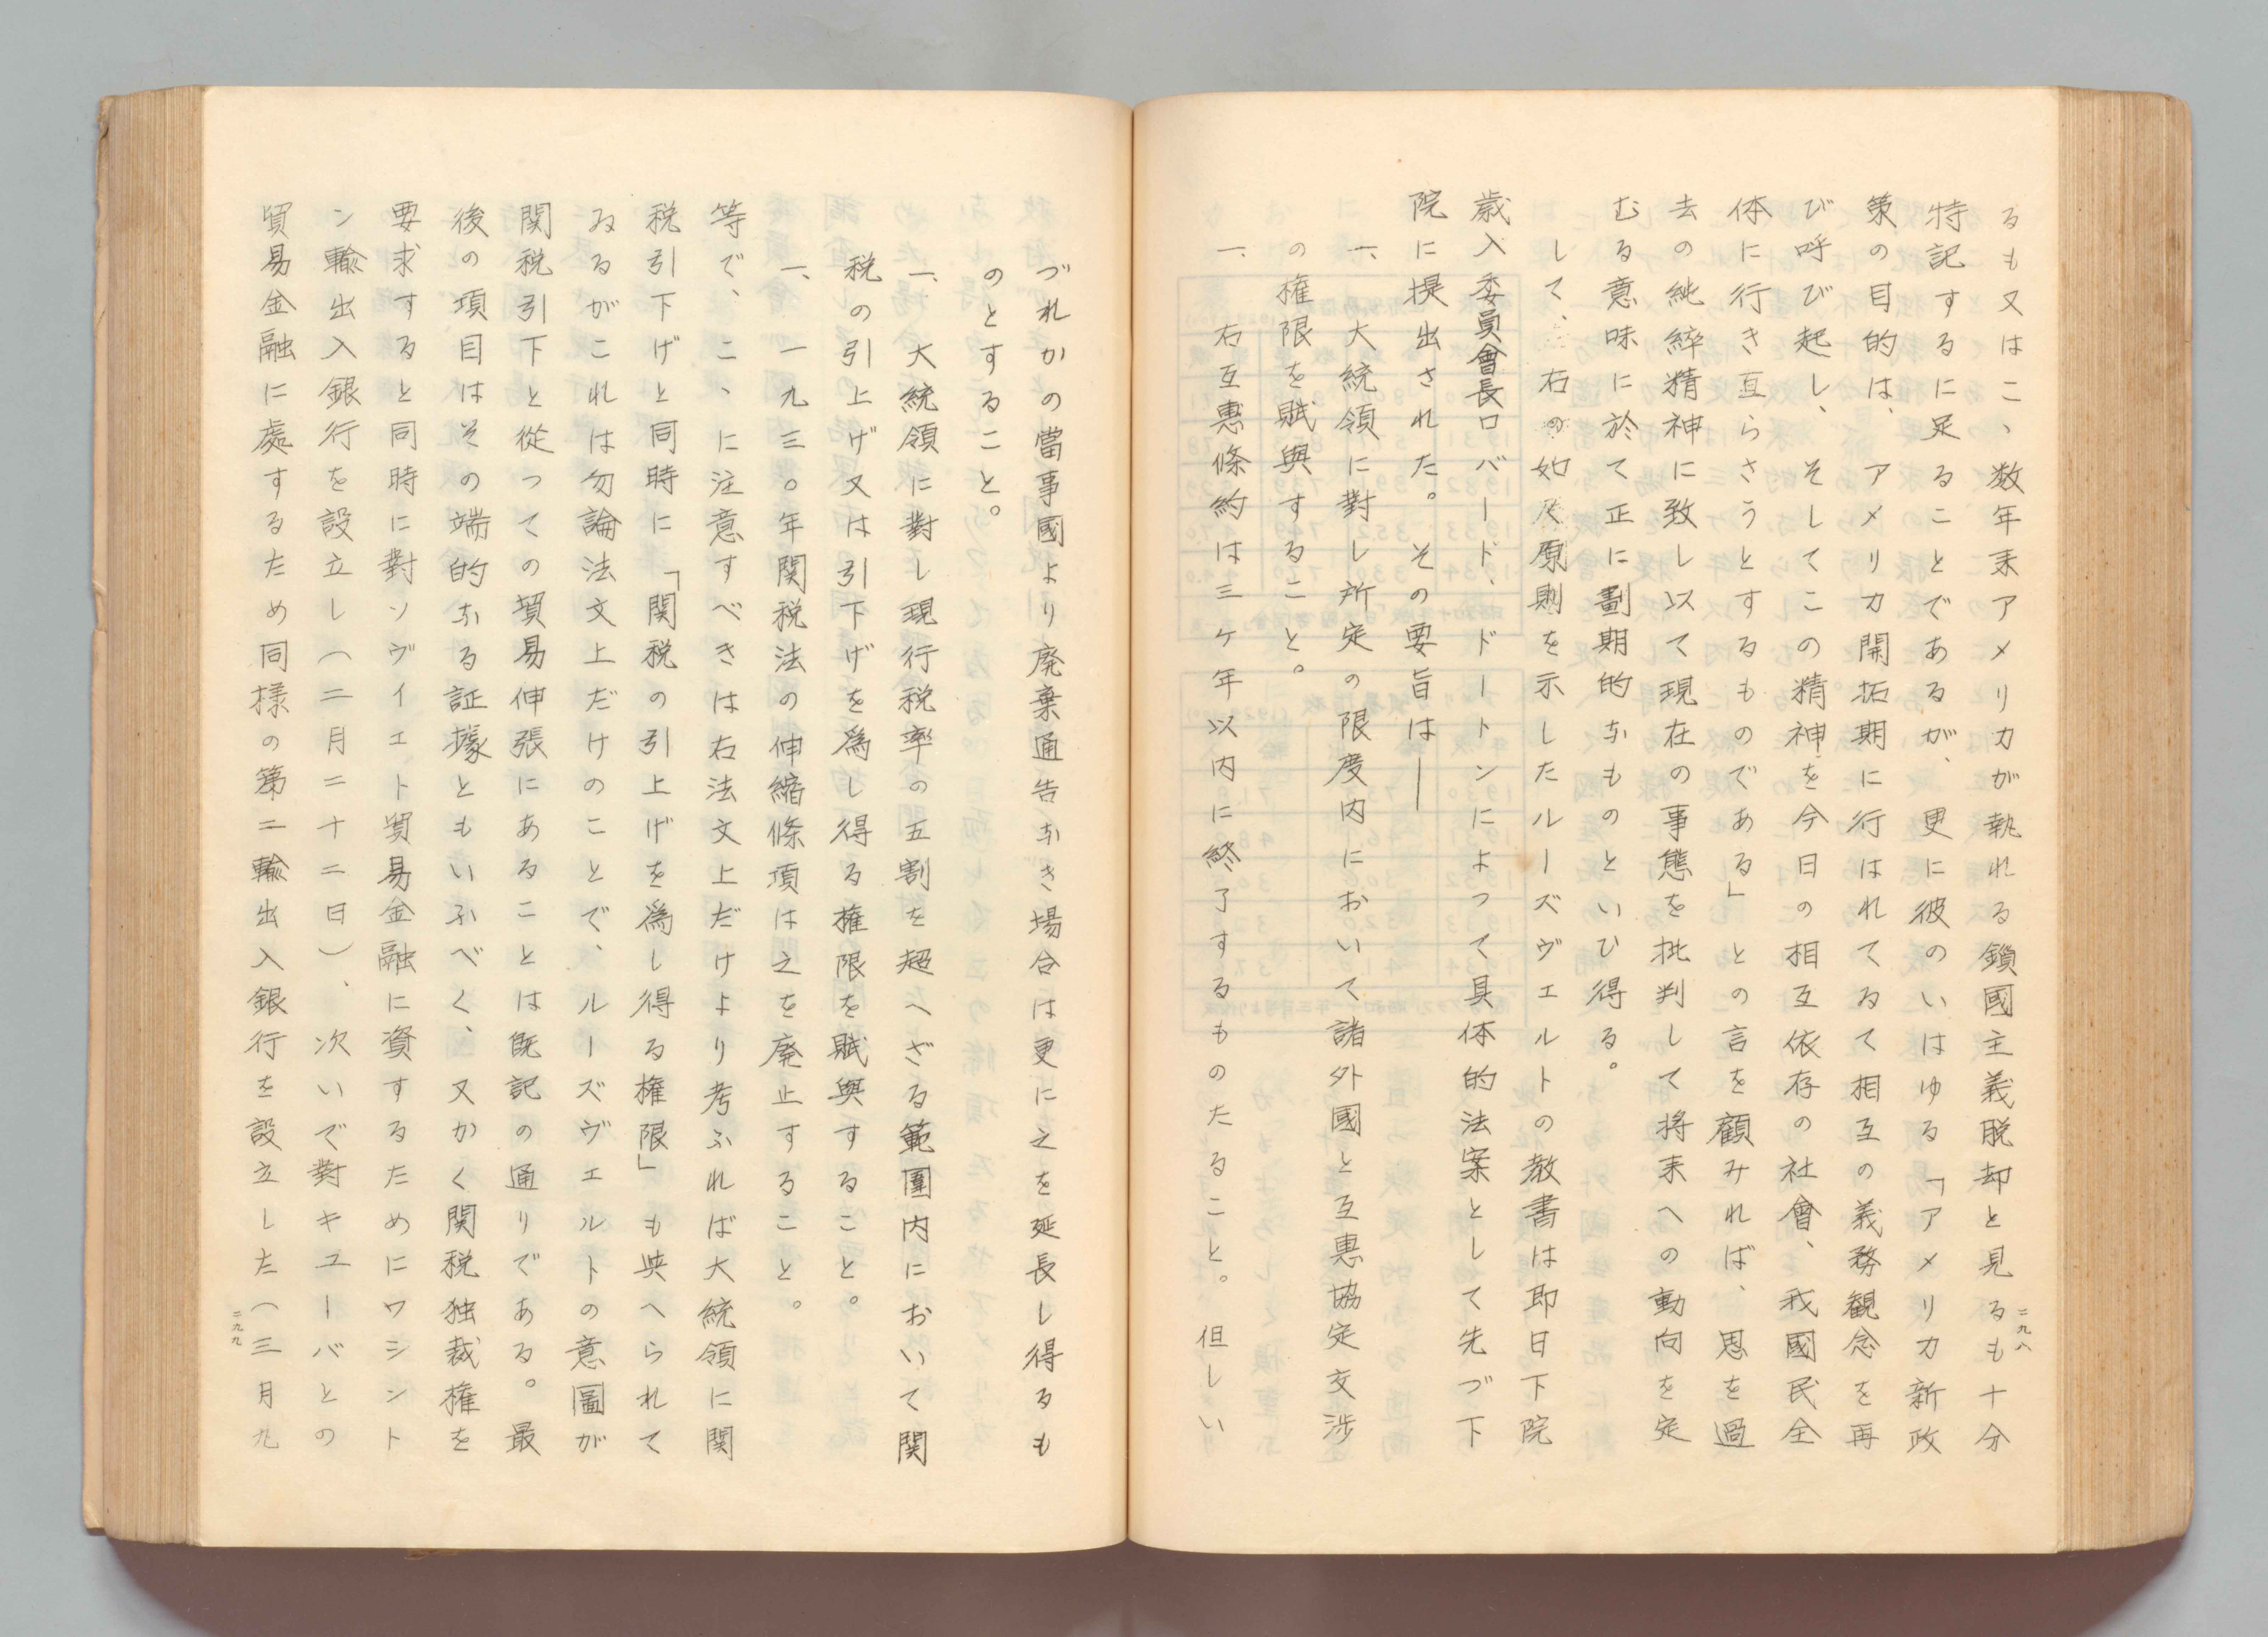 るも又はこゝ数年来アメリカが執れる鎖國主義脱却と見るも十分
特記するに足ることであるが、更に彼のいはゆる「アメリカ新政
策の目的は、アメリカ開拓期に行はれてゐて相互の義務観念を再
び呼び起し、そしてこの精神を今日の相互依存の社會、我國民全
体に行き亙らさうとするものである」との言を顧みれば、思を過
去の純粹精神に致し以て現在の事態を批判して将来への動向を定
むる意味に於て正に劃期的なものといひ得る。
して、右の如き原則を示したルーズヴェルトの教書は即日下院
歳入委員會長ロバード、ドートンによつて具体的法案として先づ下
院に提出された。その要旨は――
一、大統領に對し所定の限度内において諸外國と互惠協定交渉
の権限を賦與すること。
一、右互惠條約は三ヶ年以内に終了するものたること。但しい
二九八
づれかの當事國より廃棄通告なき場合は更に之を延長し得るも
のとすること。
一、大統領に對し現行税率の五割を超へざる範圍内において関
税の引上げ又は引下げを為し得る権限を賦與すること。
一、一九三〇年関税法の伸縮條項は之を廃止すること。
等で、こゝに注意すべきは右法文上だけより考ふれば大統領に関
税引下げと同時に「関税の引上げを為し得る権限」も與へられて
ゐるがこれは勿論法文上だけのことで、ルーズヴェルトの意圖が
関税引下と從つての貿易伸張にあることは既記の通りである。最
後の項目はその端的なる証據ともいふべく、又かく関税独裁権を
要求すると同時に對ソヴイエト貿易金融に資するためにワシント
ン輸出入銀行を設立し（二月二十二日）、次いで對キユーバとの
貿易金融に處するため同様の第二輸出入銀行を設立した（三月九
二九九